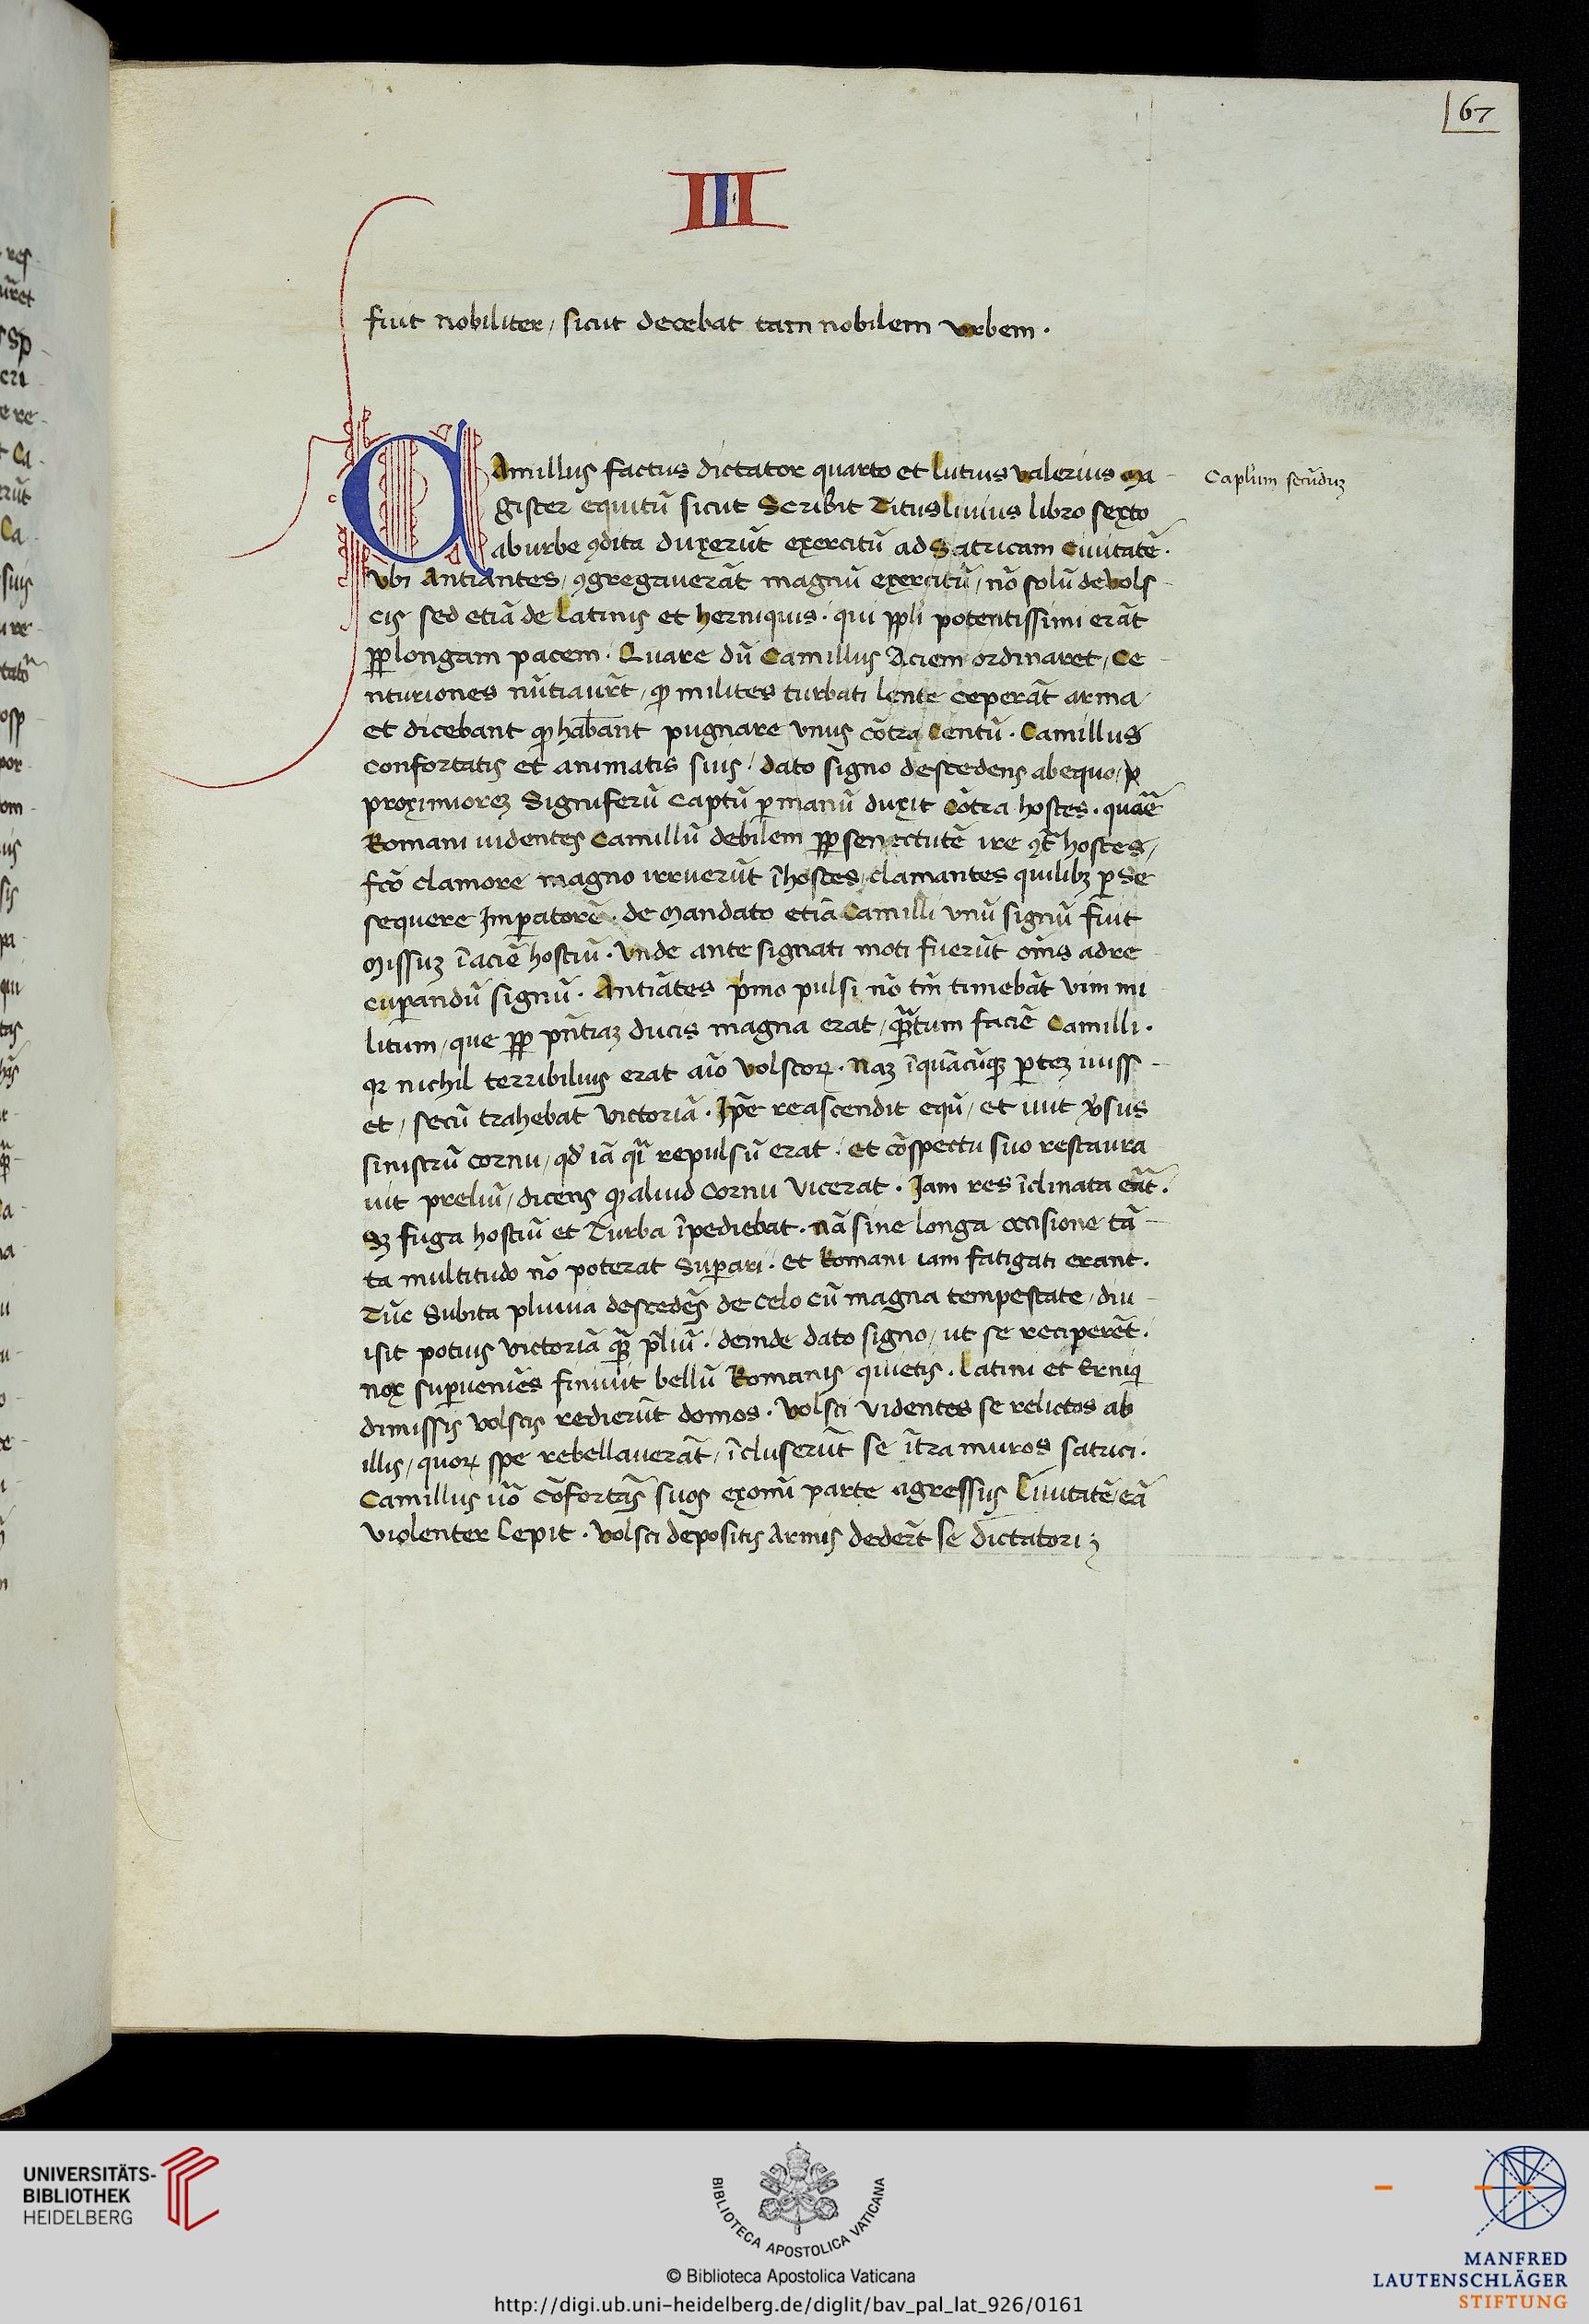 67
III
fuit nobiliter / sicut decebat tam nobilem vrbem .
CAmillus factus dictator quarto et lutius valerius ma-
Caplum secũduȝ
gister equitũ sicut Scribit Titus liuius libro sexto
ab urbe ꝯdita duxerũt exercitũ ad Satricam Ciuitatẽ .
vbi Antiantes / ꝯgregauerãt magnũ exercitũ / nõ solũ de vols-
cis sed etiã de latinis et herniquis . qui ppli potentissimi erãt
ꝓꝑ longam pacem . Quare dũ Camillus Aciem ordinaret / Ce-
nturiones nũtiaur̃t / ꝙ milites turbati lente ceperãt arma /
et dicebant ꝙ habe̅ant pugnare vnus cõtra Centũ . Camillus
confortatis et animatis suis / dato signo descedens ab equo /
proximioreȝ Signiferũ Captũ ꝑ manũ duxit Cõtra hostes .
Romani uidentes Camillũ debilem ꝓꝑ senectutẽ ire ꝯt̃ hostes /
fc̃o clamore magno irruerũt ĩ hostes / clamantes quilibȝ ꝑ se
sequere Imꝑatorẽ . de mandato etiã Camilli vnũ signũ fuit
missuȝ ĩ aciẽ hostiũ . Vnde ante signati moti fuerũt om̃s ad re-
cuꝑandũ signũ . Antiãtes pͥmo pulsi nõ tm̃ timebãt vim mi-
litum / que ꝓꝑ pñtiaȝ ducis magna erat / ꝙ̃tum faciẽ Camilli .
qꝛ nichil terribilius erat aĩo volscoꝝ . Naȝ ĩ quãcũqȝ ꝑteȝ iuiss-
et / secũ trahebat victoriã . Ip̃e reascendit equũ / et iuit v̉sus
sinistrũ cornu / qd̉ iã qͣi repulsũ erat . et cõspectu suo restaura
uit preliũ / dicens ꝙ aliud cornu vicerat . Jam res ĩclinata erãt .
sȝ fuga hostiũ et Turba ĩpediebat . nã sine longa occisione tã-
ta multitudo nõ poterat Suꝑari . et Romani iam fatigati erant .
Tũc Subita pluuia descedẽs de celo cũ magna tempestate / diu-
isit potius victoriã ꝙ̃ p̃liũ . deinde dato signo / ut se reciperẽt .
nox suꝑueniẽs finiuit bellũ Romanis quietis . Latini et Erniq̃
dimissis volscis redierũt domos . Volsci videntes se relictos ab
illis / quoꝝ spe rebellauerãt / ĩcluserũt se ĩtra muros satrici .
Camillus ũo cõfortãs suos ex om̃i parte agressus Ciuitatẽ / eã
violenter Cepit . Volsci depositis Armis deder̃t se dictatori ;
UNIVERSITÄTS-
BIBLIOTHEK
HEIDELBERG
BIBLIOTECA APOSTOLICA VATICANA
© Biblioteca Apostolica Vaticana
http://digi.ub.uni-heidelberg.de/diglit/bav_pal_lat_926/0161
MANFRED
LAUTENSCHLÄGER
STIFTUNG